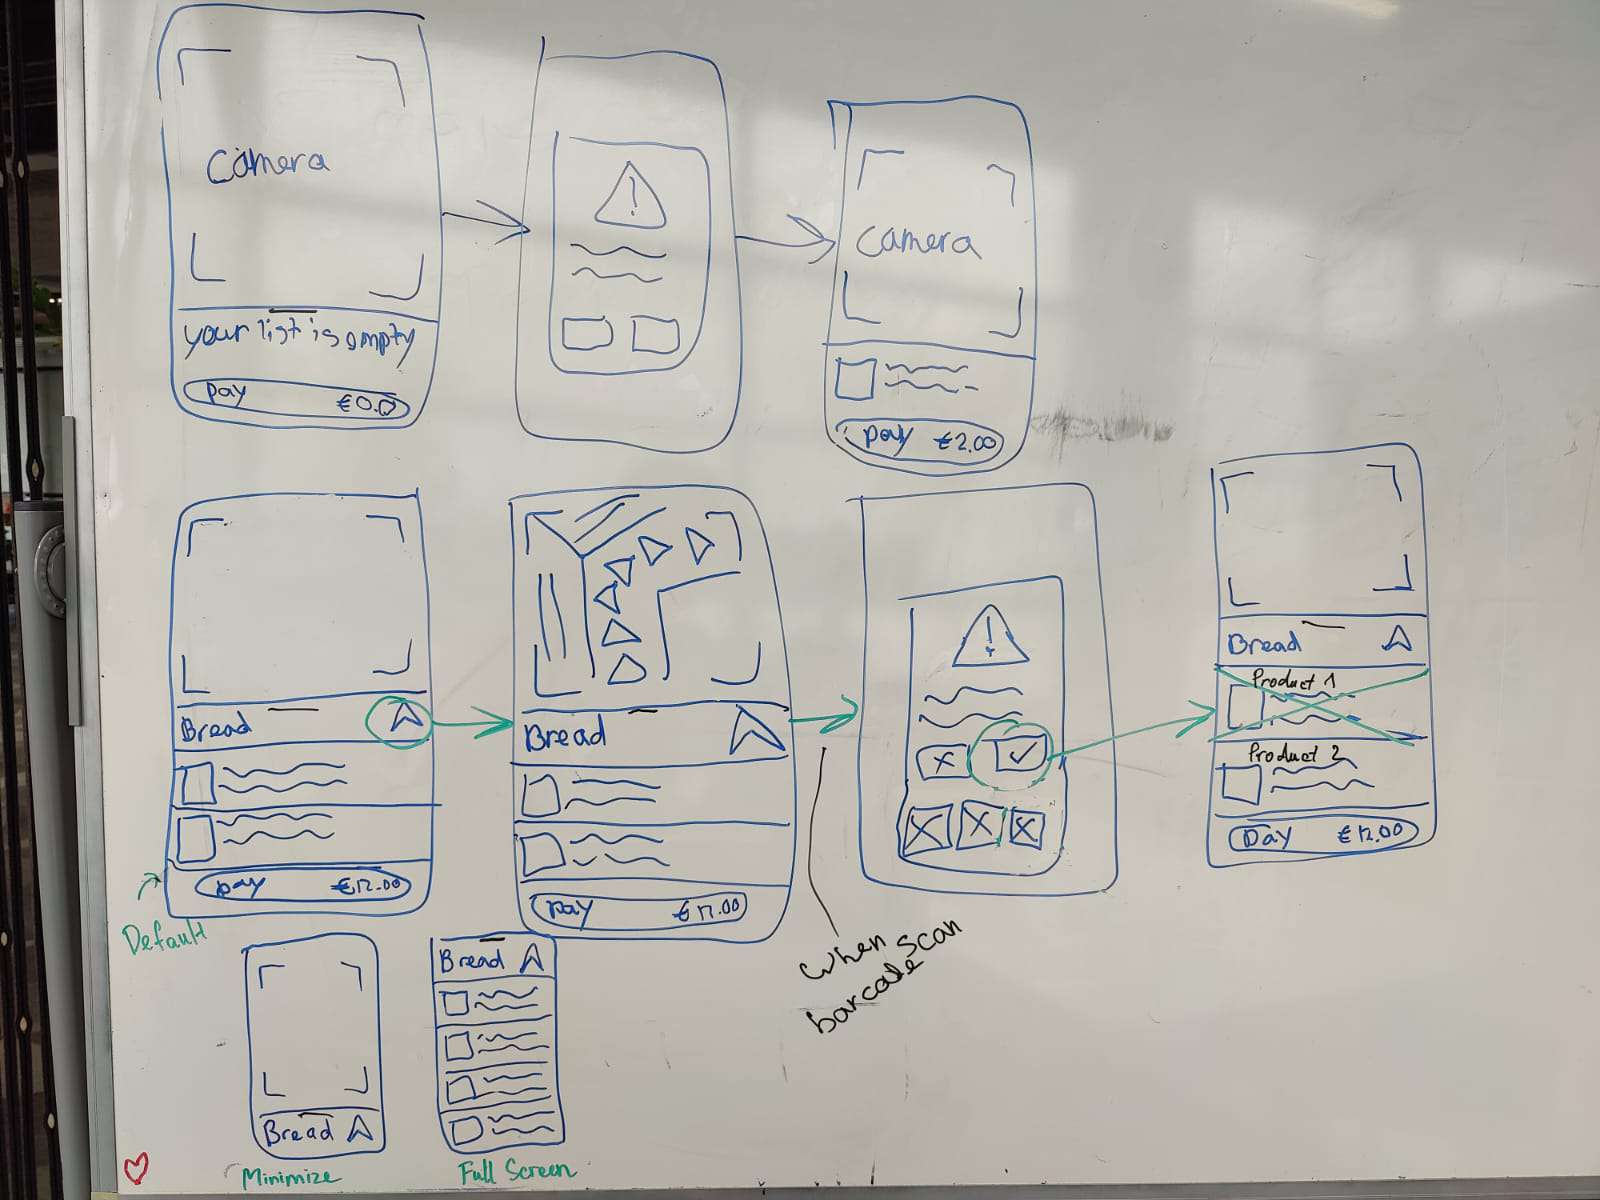 Camera
your list is empty
pay €0.0
Camera
pay €2.00
Bread
pay €12.00
Default
Bread
pay €12.00
When
barcode scan
Bread
Product 1
Product 2
Pay €12.00
Bread
Minimize
Bread
Full Screen